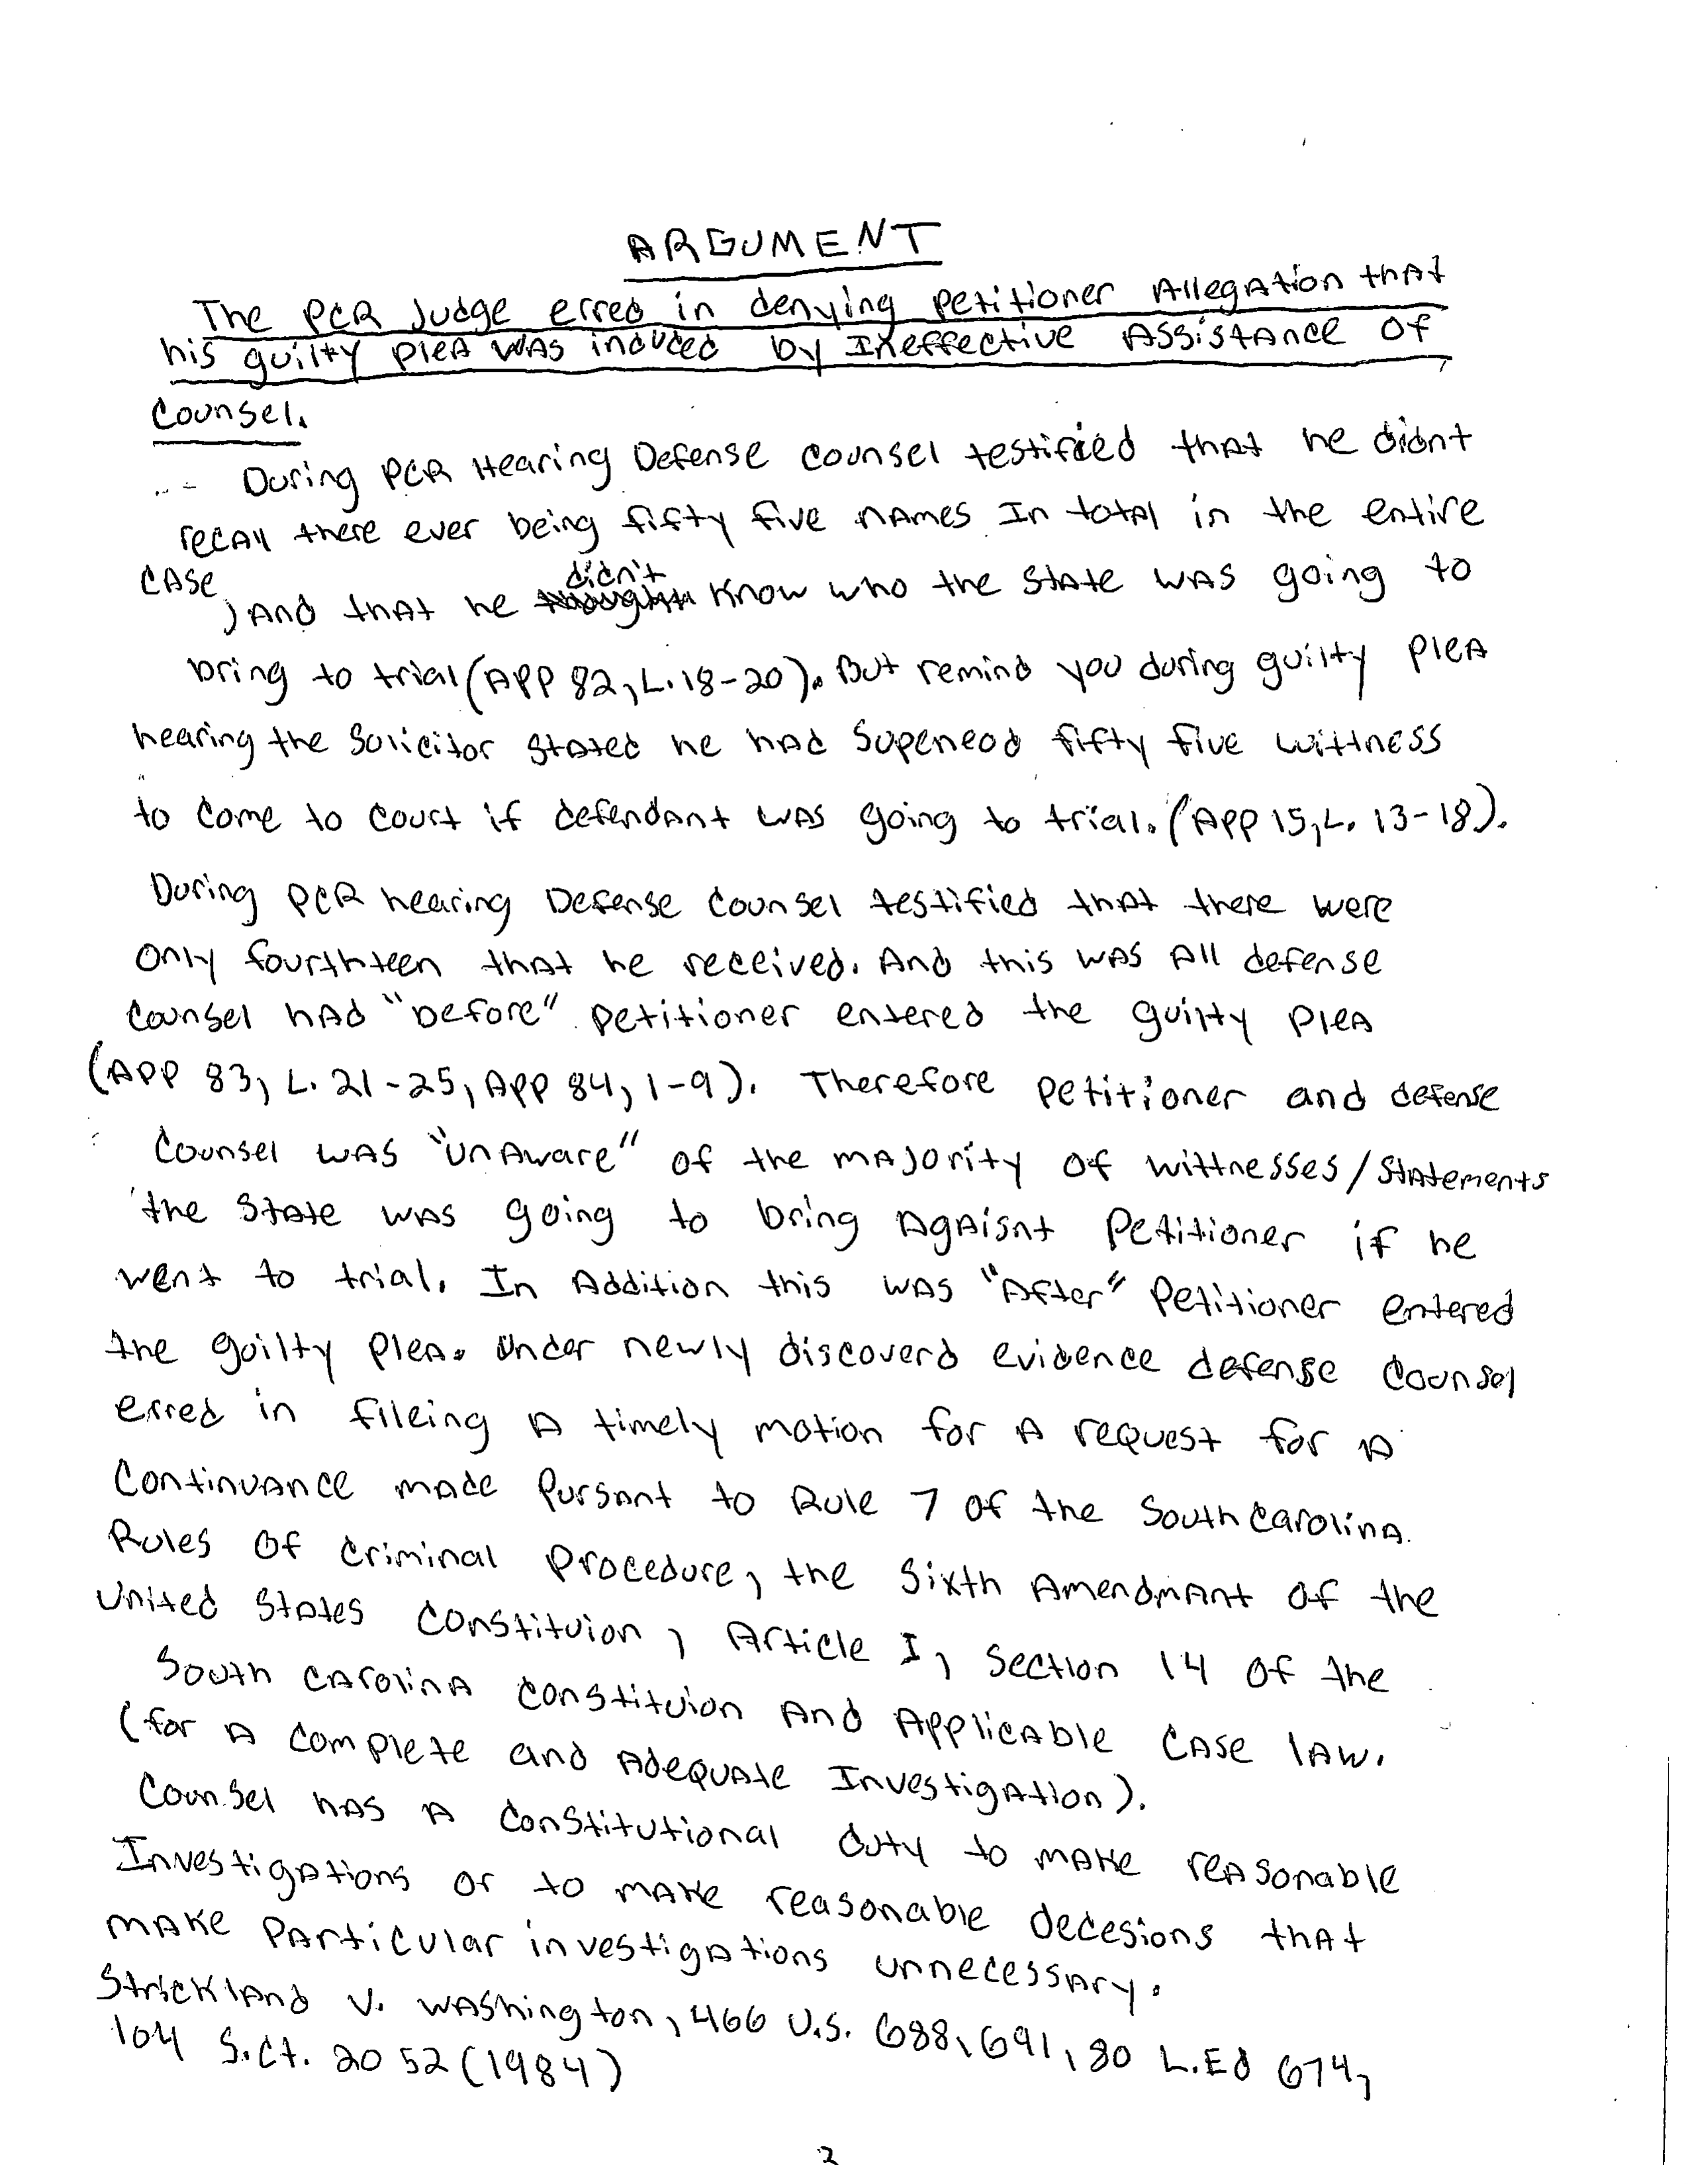 ARGUMENT
The PCR Judge erred in denying petitioner Allegation that
his guilty plea was induced by Ineffective Assistance of
Counsel.
During PCR Hearing Defense counsel testified that he didnt
recall there ever being fifty five names In total in the entire
case, And that he didn't know who the state was going to
bring to trial (App 82, L. 18-20). But remind you during guilty plea
hearing the Solicitor stated he had Supeneod fifty five wittness
to come to court if defendant was going to trial. (App 15, L. 13-18).
During PCR hearing Defense counsel testified that there were
only fourthteen that he received. And this was All defense
counsel had "before" petitioner entered the guilty plea
(App 83, L. 21-25, App 84, 1-9). Therefore petitioner and defense
counsel was "unAware" of the majority of wittnesses/statements
the state was going to bring Agaisnt Petitioner if he
went to trial. In Addition this was "After" Petitioner entered
the guilty plea. Under newly discoverd evidence defense counsel
erred in fileing A timely motion for A request for A
Continuance made Pursant to Rule 7 of the South Carolina
Rules of Criminal Procedure, the Sixth Amendmant of the
United States Constituion, Article I, Section 14 of the
South Carolina Constituion And Applicable Case law.
(for A complete and Adequate Investigation).
Counsel has A Constitutional duty to make reasonable
Investigations or to make reasonable decesions that
make particular investigations unnecessary.
Strickland v. Washington, 466 U.S. 688, 691, 80 L.Ed 674,
104 S.Ct. 2052 (1984)